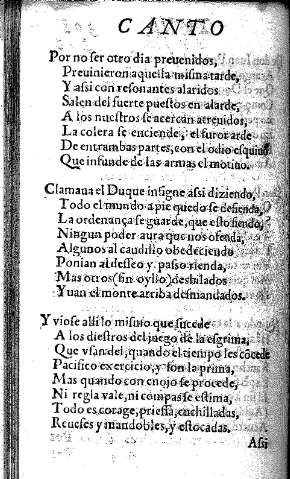 CANTO
Por no ser otro dia preuenidos,
Preuinieron aquella misma tarde,
Y assi con resonantes alaridos
Salen del fuerte puestos en alarde,
A los nuestros se acercan atreuidos,
La colera se enciende, el furor arde
De entrambas partes, con el odio esquiuo
Que infunde de las armas el motiuo.
Clamaua el Duque insigne assi diziendo,
Todo el mundo a pie quedo se defienda,
La ordenança se guarde, que esto siendo,
Ningun poder aura que nos ofenda,
Algunos al caudillo obedeciendo
Ponian al desseo y passo rienda,
Mas otros (sin oyllo) desbilados
Yuan el monte arriba desmandados.
Y viose alli lo mismo que sucede
A los diestros del juego de la esgrima,
Que vsan del, quando el tiempo les cõcede
Pacifico exercicio, y son la prima,
Mas quando con enojo se procede,
Ni regla vale, ni compas se estima,
Todo es corage, priessa, cuchilladas,
Reueses y mandobles, y estocadas.
Assi